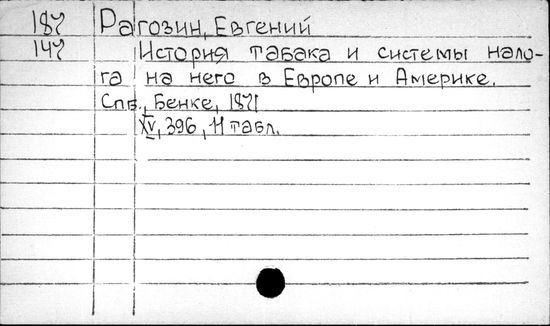 187 Рагозин, Евгений
147 История табака и системы нало-
га на него в Европе и Америке.
Спб., Бенке, 1871
XV, 396, 11 табл.